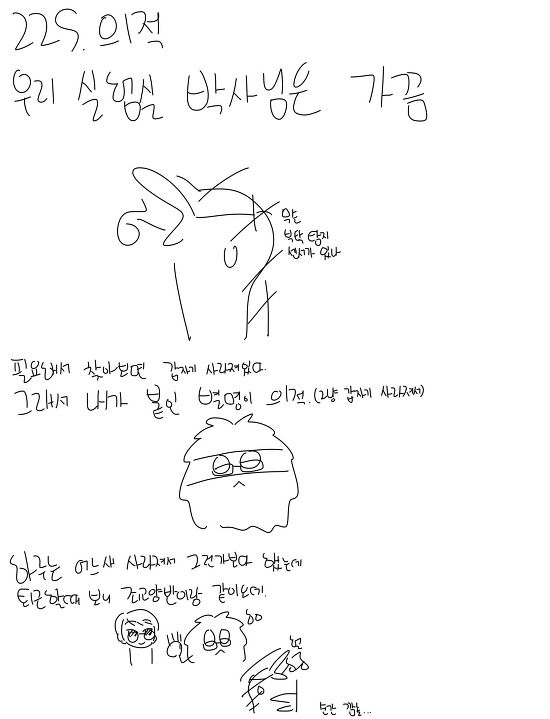 225. 의적
우리 실험실 박사님은 가끔
부탁 탐지
센서가 있나
필요해서 찾아보면 갑자기 사라져있다.
그래서 내가 붙인 별명이 의적. (그냥 갑자기 사라져서)
하루는 어느새 사라져서 그런가보다 했는데
퇴근할때 보니 조교양반이랑 같이오데.
순간